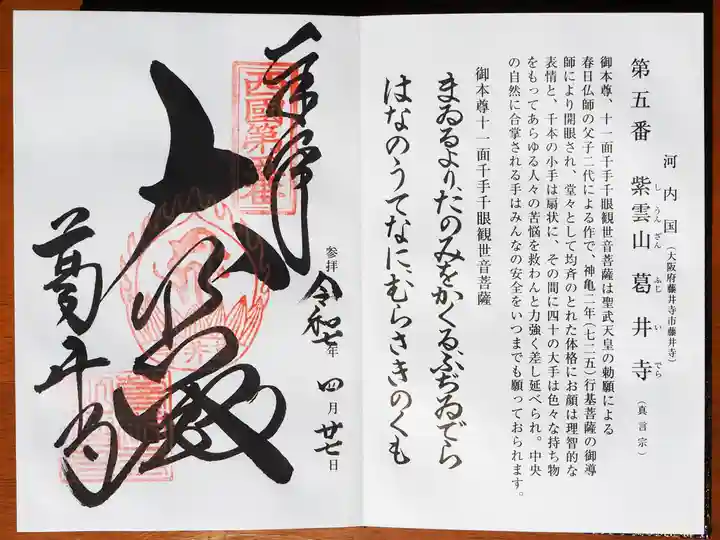 河内国（大阪府藤井寺市藤井寺）
第五番 紫雲山葛井寺（真言宗）
しうんざん ふじいでら
御本尊、十一面千手千眼観世音菩薩は聖武天皇の勅願による
春日仏師の父子二代による作で、神亀二年（七二五）行基菩薩の御導
師により開眼され、堂々として均斉のとれた体格にお顔は理智的な
表情と、千本の小手は扇状に、その間に四十の大手は色々な持ち物
をもってあらゆる人々の苦悩を救わんと力強く差し延べられ。中央
の自然に合掌される手はみんなの安全をいつまでも願っておられます。
御本尊十一面千手千眼観世音菩薩
まゐるよりたのみをかくるふぢゐでら
はなのうてなにむらさきのくも
奉拝
西國第五番
参拝 令和七年 四月 廿七日
大悲殿
葛井寺